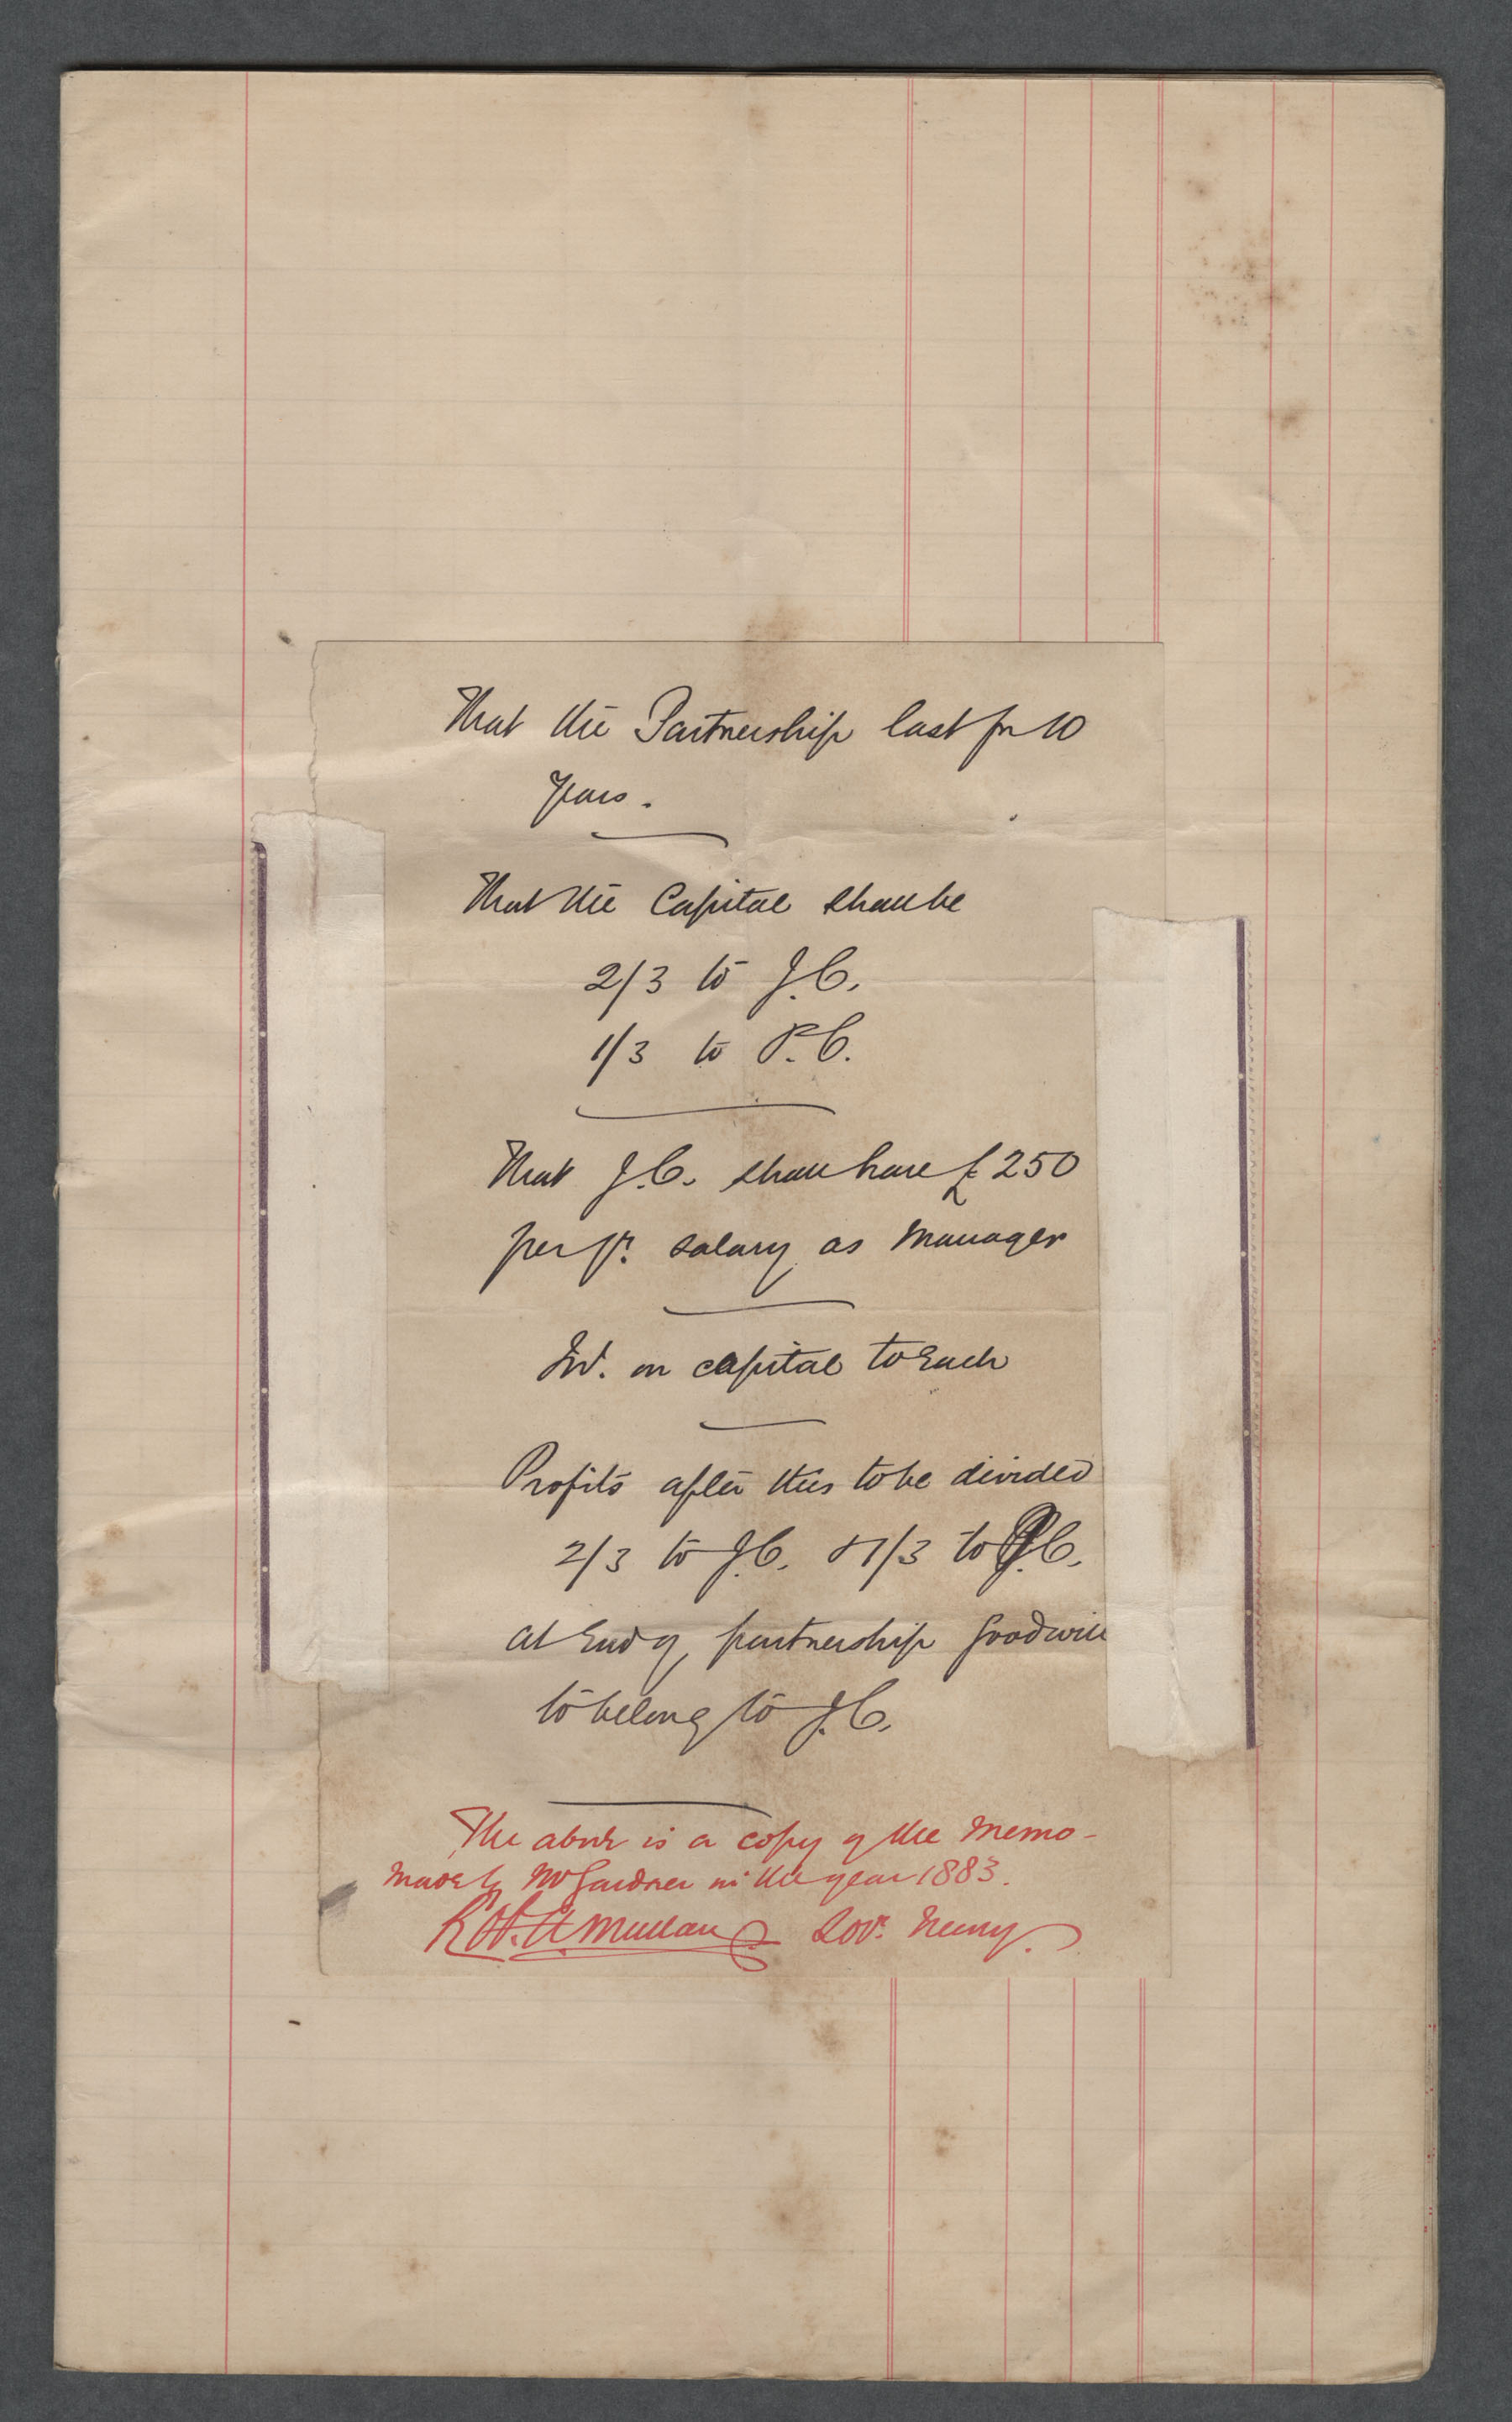 That the Partnership last for 10
years.
That the Capital shall be
2/3 to J.C.
1/3 to P.C.
That J.C. shall have £250
per yr. salary as Manager
Int. on capital to Each
Profits after this to be divided
2/3 to J.C. & 1/3 to P.C.
At End of partnership Goodwill
to belong to J.C.
The above is a copy of the Memo-
made by Mr Gardner in the year 1883.
Solr. Newry.